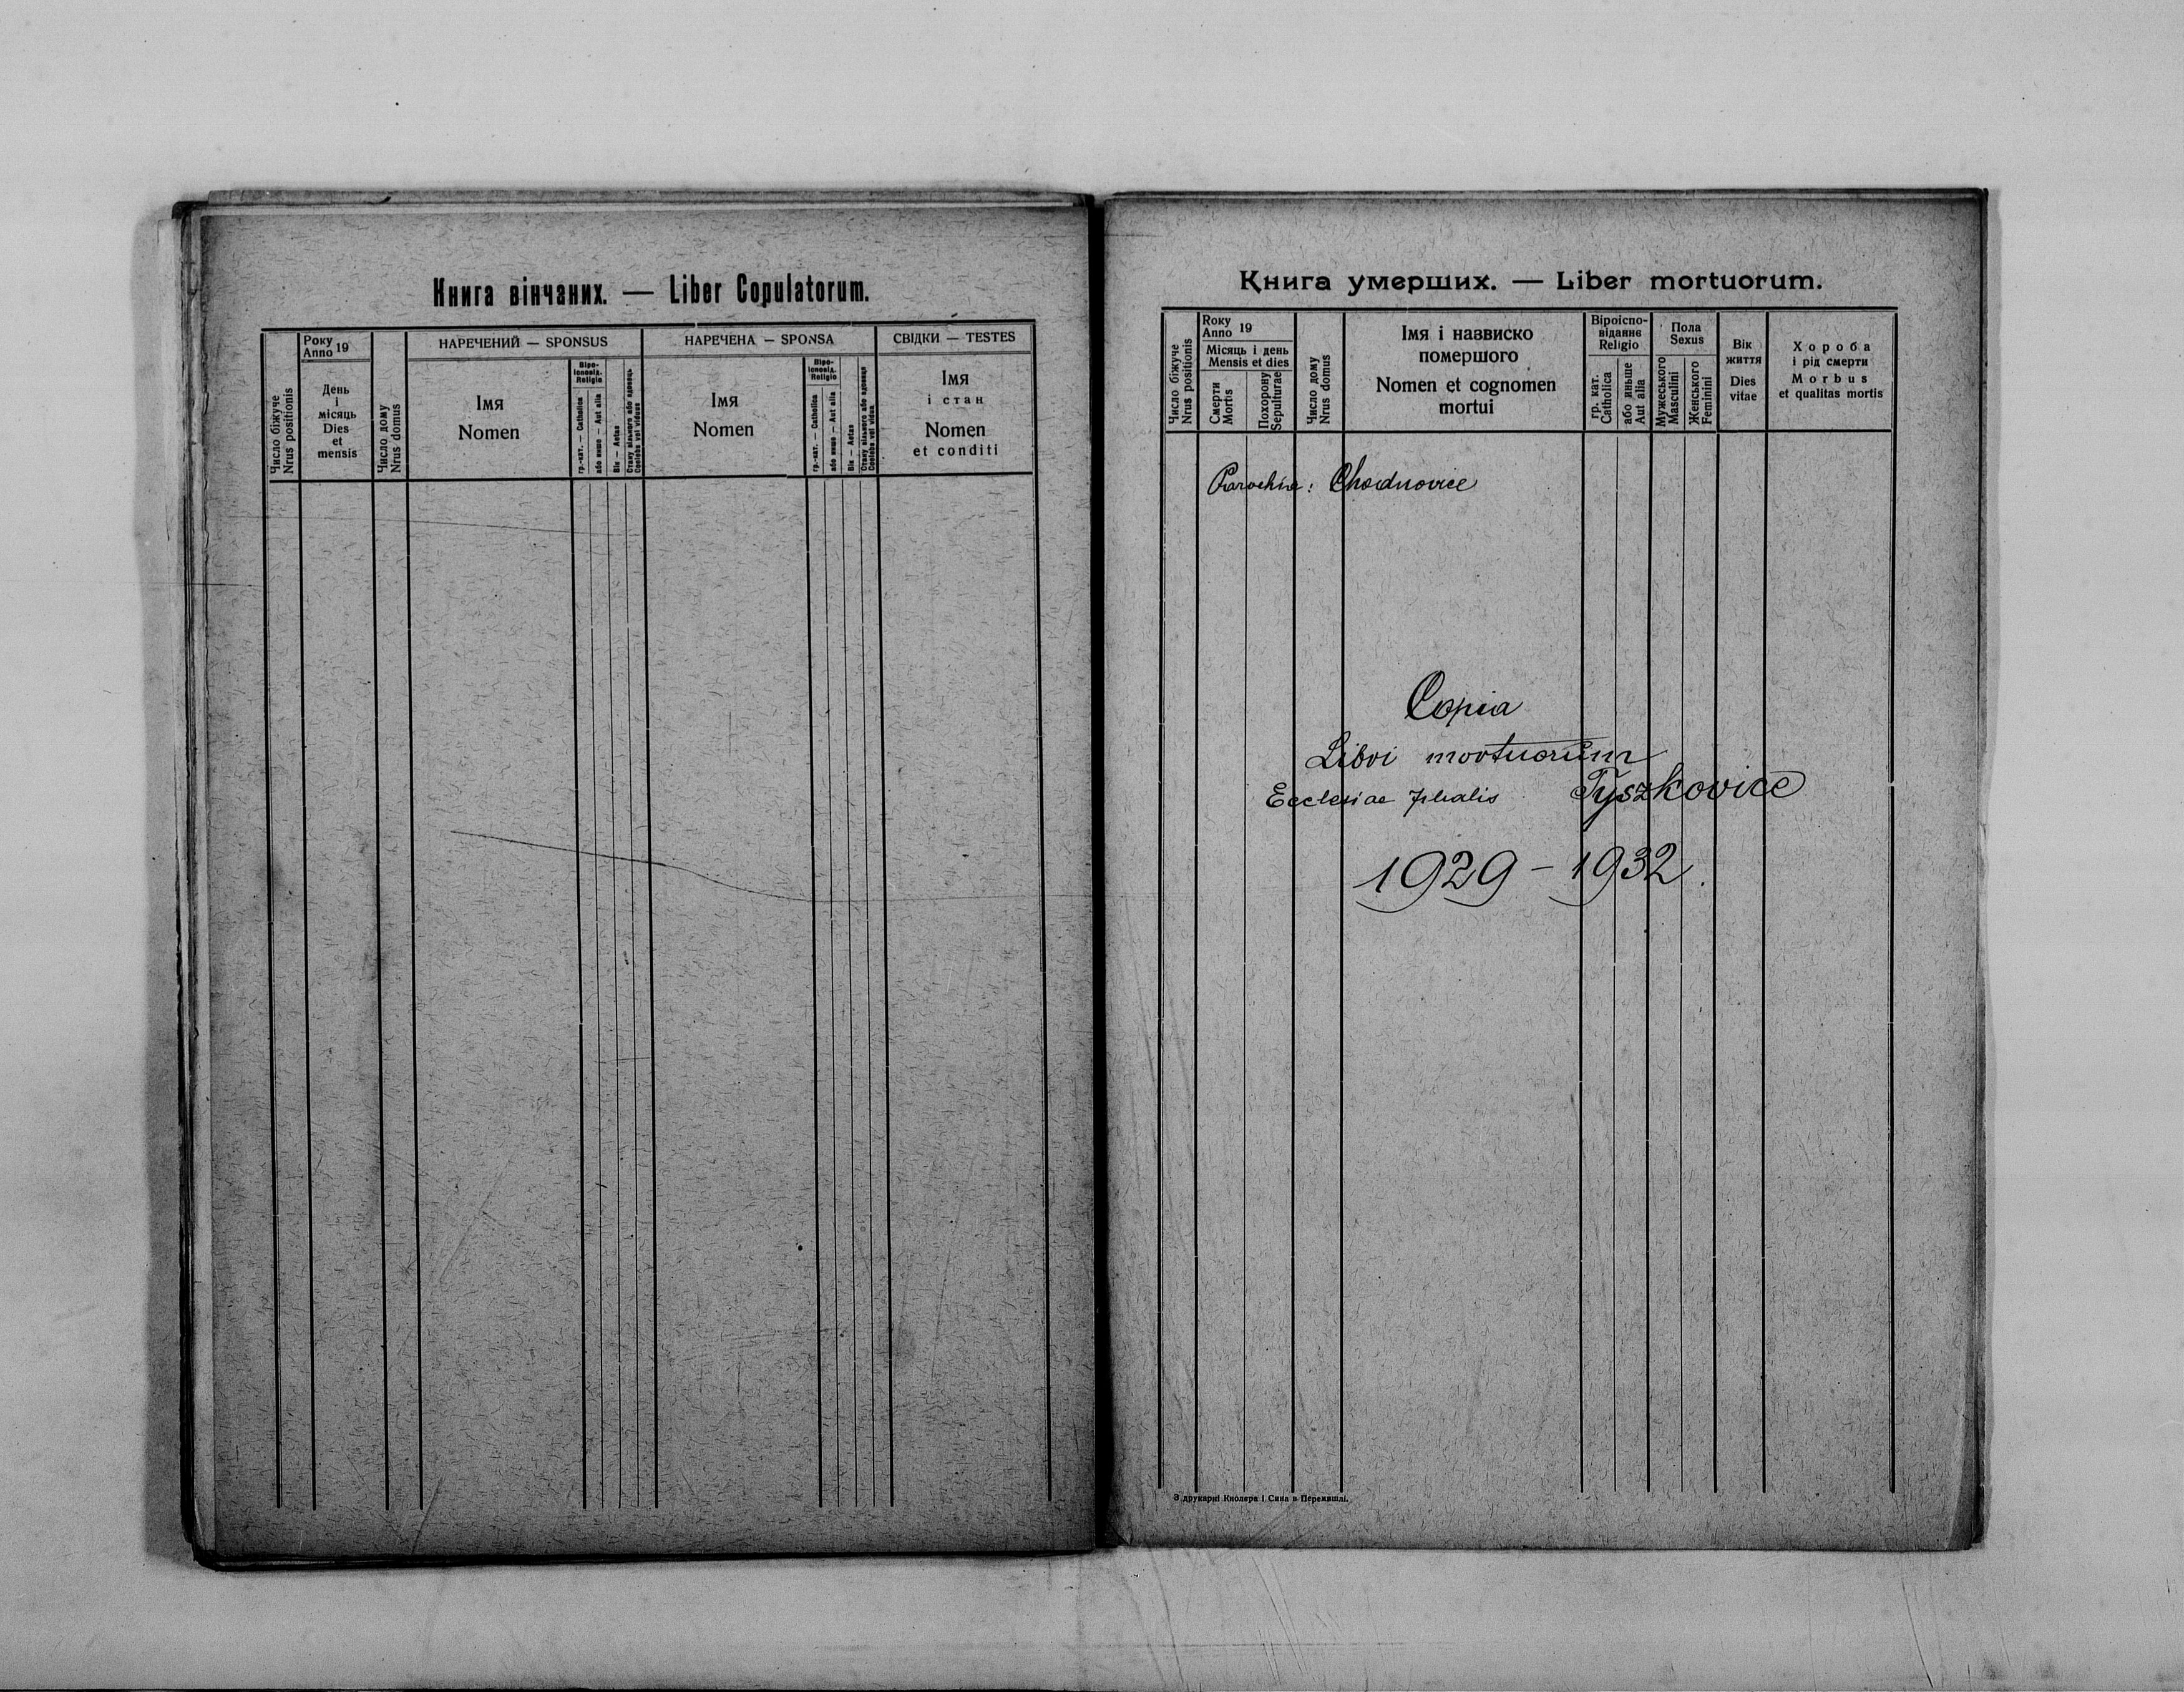 Книга вінчаних. — Liber Copulatorum.
Число біжуче
Nrus positionis
Року
Anno 19
День
і
місяць
Dies
et
mensis
Число дому
Nrus domus
НАРЕЧЕНИЙ — SPONSUS
Імя
Nomen
Віро-
ісповід.
Religio
гр.-кат. — Catholica
або инше — Aut alia
Вік — Aetas
Стану вільного або вдовець
Coelebs vel viduus
НАРЕЧЕНА — SPONSA
Імя
Nomen
Віро-
ісповід.
Religio
гр.-кат. — Catholica
або инше — Aut alia
Вік — Aetas
Стану вільного або вдовиця
Coelebs vel vidua
СВІДКИ — TESTES
Імя
і стан
Nomen
et conditi
Книга умерших. — Liber mortuorum.
Число біжуче
Nrus positionis
Року
Anno 19
Місяць і день
Mensis et dies
Смерти
Mortis
Похорону
Sepulturae
Число дому
Nrus domus
Імя і назвиско
помершого
Nomen et cognomen
mortui
Віроіспо-
віданнє
Religio
гр. кат.
Catholica
або иньше
Aut alia
Пола
Sexus
Мужеського
Masculini
Женського
Feminini
Вік
життя
Dies
vitae
Хороба
і рід смерти
Morbus
et qualitas mortis
Parochia: Chodnovice
Copia
Libri mortuorum
Ecclesiae filialis Tyszkovice
1929 – 1932.
З друкарні Кнолера і Сина в Перемишлі.